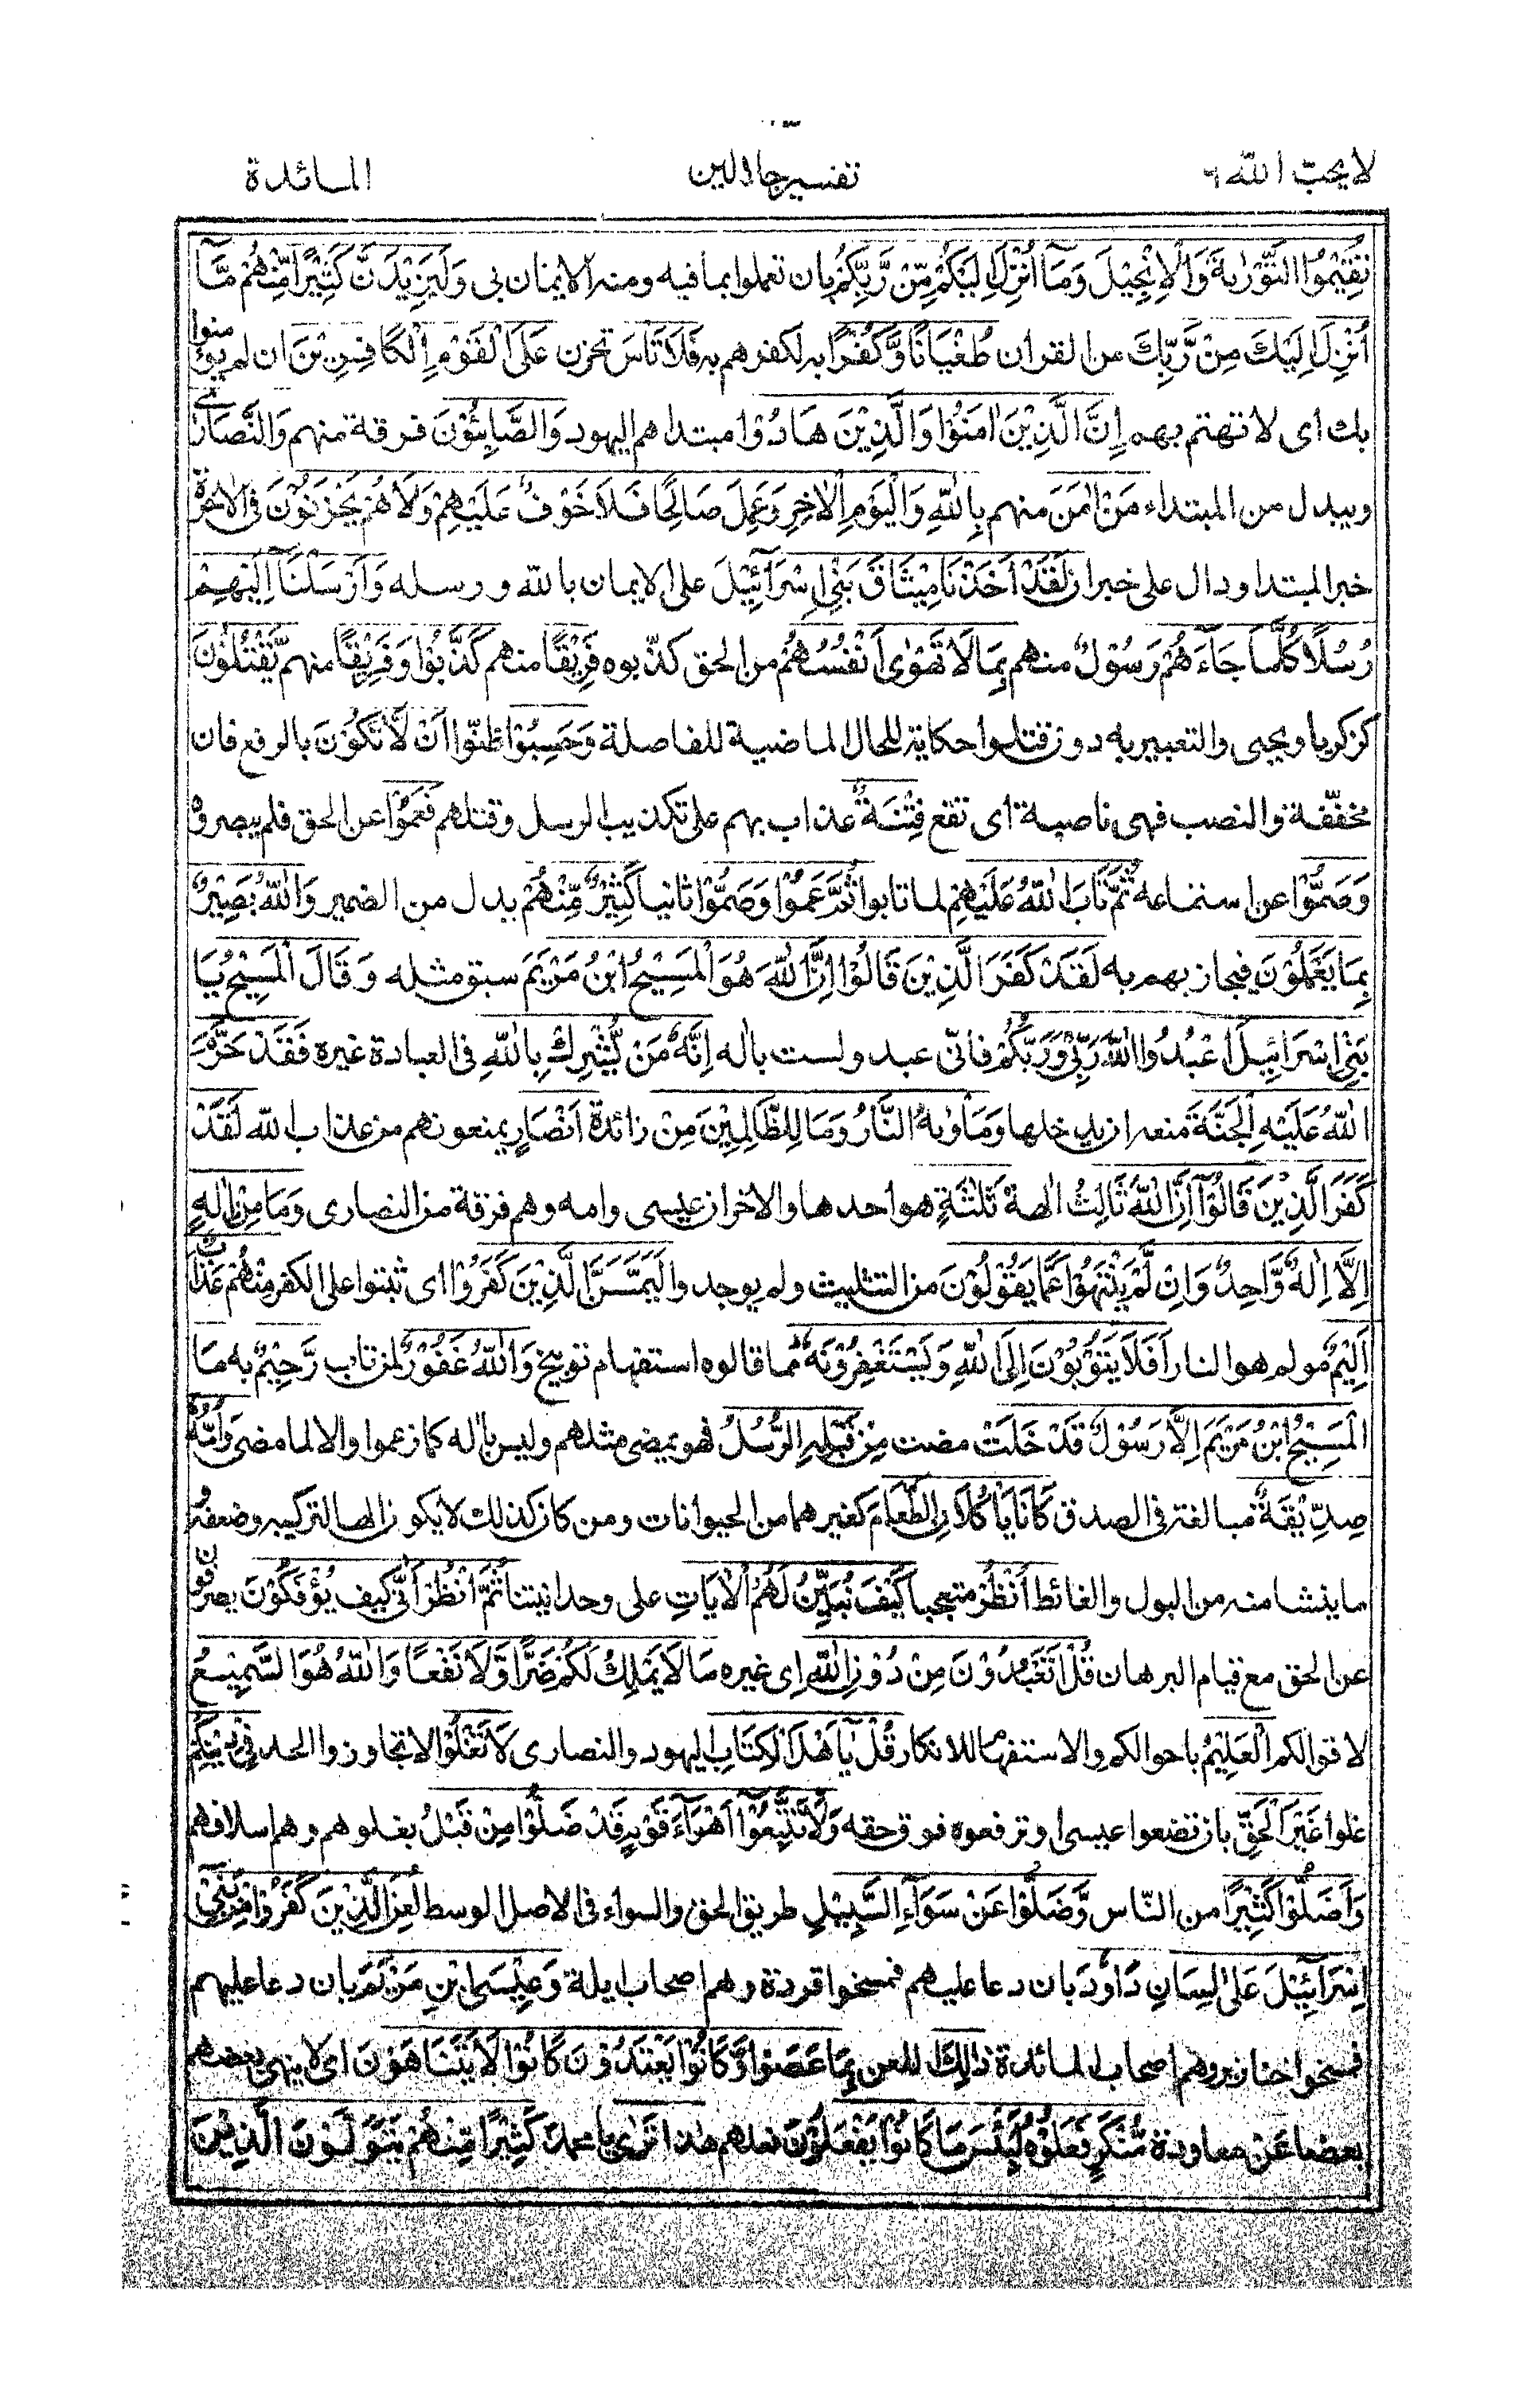 لا يحب الله ٦ تفسير جلالين المائدة
تُقِيْمُوا التَّوْرٰىةَ وَالْاِنْجِيْلَ وَمَآ اُنْزِلَ اِلَيْكُمْ مِّنْ رَّبِّكُمْ بان تعملوا بما فيه ومنه الايمان بى وَلَيَزِيْدَنَّ كَثِيْرًا مِّنْهُمْ مَّآ
اُنْزِلَ اِلَيْكَ مِنْ رَّبِّكَ من القران طُغْيَانًا وَّكُفْرًا به لكفرهم به فَلَا تَاْسَ تحزن عَلَى الْقَوْمِ الْكَافِرِيْنَ ان لم يؤمنوا
بك اى لا تهتم بهم اِنَّ الَّذِيْنَ اٰمَنُوْا وَالَّذِيْنَ هَادُوْا مبتدا هم اليهود وَالصَّابِئُوْنَ فرقة منهم وَالنَّصَارٰى
ويبدل من المبتداء مَنْ اٰمَنَ منهم بِاللّٰهِ وَالْيَوْمِ الْاٰخِرِ وَعَمِلَ صَالِحًا فَلَا خَوْفٌ عَلَيْهِمْ وَلَا هُمْ يَحْزَنُوْنَ فى الاٰخرة
خبر المبتدا ودال على خبر ان لَقَدْ اَخَذْنَا مِيْثَاقَ بَنِيْ اِسْرَآئِيْلَ على الايمان بالله ورسله وَاَرْسَلْنَآ اِلَيْهِمْ
رُسُلًا كُلَّمَا جَآءَهُمْ رَسُوْلٌ منهم بِمَا لَا تَهْوٰى اَنْفُسُهُمْ من الحق كذّبوه فَرِيْقًا منهم كَذَّبُوْا وَفَرِيْقًا منهم يَّقْتُلُوْنَ
كزكريا ويحيى والتعبير به دون قتلوا حكاية للحال الماضية للفاصلة وَحَسِبُوْا ظنّوا اَنْ لَّا تَكُوْنَ بالرفع فان
مخفّفة والنصب فهى ناصبة اى تقع فِتْنَةٌ عذاب بهم على تكذيب الرسل وقتلهم فَعَمُوْا عن الحق فلم يبصروه
وَصَمُّوْا عن استماعه ثُمَّ تَابَ اللّٰهُ عَلَيْهِمْ لما تابوا ثُمَّ عَمُوْا وَصَمُّوْا ثانيا كَثِيْرٌ مِّنْهُمْ بدل من الضمير وَاللّٰهُ بَصِيْرٌ
بِمَا يَعْمَلُوْنَ فيجازيهم به لَقَدْ كَفَرَ الَّذِيْنَ قَالُوْا اِنَّ اللّٰهَ هُوَ الْمَسِيْحُ ابْنُ مَرْيَمَ سبق مثله وَقَالَ الْمَسِيْحُ يَا
بَنِيْ اِسْرَائِيْلَ اعْبُدُوا اللّٰهَ رَبِّيْ وَرَبَّكُمْ فانّى عبد ولست باله اِنَّهٗ مَنْ يُّشْرِكْ بِاللّٰهِ فى العبادة غيره فَقَدْ حَرَّمَ
اللّٰهُ عَلَيْهِ الْجَنَّةَ منعه ان يدخلها وَمَاْوٰىهُ النَّارُ وَمَا لِلظَّالِمِيْنَ مِنْ زائدة اَنْصَارٍ يمنعونهم من عذاب الله لَقَدْ
كَفَرَ الَّذِيْنَ قَالُوْآ اِنَّ اللّٰهَ ثَالِثُ الهة ثَلٰثَةٍ هو احدها والاخران عيسى وامه وهم فرقة من النصارى وَمَا مِنْ اِلٰهٍ
اِلَّا اِلٰهٌ وَّاحِدٌ وَاِنْ لَّمْ يَنْتَهُوْا عَمَّا يَقُوْلُوْنَ من التثليث ولم يوحدوا لَيَمَسَّنَّ الَّذِيْنَ كَفَرُوْا اى ثبتوا على الكفر مِنْهُمْ عَذَابٌ
اَلِيْمٌ مولم هو النار اَفَلَا يَتُوْبُوْنَ اِلَى اللّٰهِ وَيَسْتَغْفِرُوْنَهٗ مما قالوه استفهام توبيخ وَاللّٰهُ غَفُوْرٌ لمن تاب رَّحِيْمٌ به مَا
الْمَسِيْحُ ابْنُ مَرْيَمَ اِلَّا رَسُوْلٌ قَدْ خَلَتْ مضت مِنْ قَبْلِهِ الرُّسُلُ فهو يمضى مثلهم وليس باله كما زعموا والا لما مضى وَاُمُّهٗ
صِدِّيْقَةٌ مبالغة فى الصدق كَانَا يَاْكُلَانِ الطَّعَامَ كغيرهما من الحيوانات ومن كان كذلك لا يكون الها لتركيبه وضعفه و
ما ينشا منه من البول والغائط اُنْظُرْ متعجبا كَيْفَ نُبَيِّنُ لَهُمُ الْاٰيَاتِ على وحدانيتنا ثُمَّ انْظُرْ اَنّٰى كيف يُؤْفَكُوْنَ يصرفون
عن الحق مع قيام البرهان قُلْ اَتَعْبُدُوْنَ مِنْ دُوْنِ اللّٰهِ اى غيره مَا لَا يَمْلِكُ لَكُمْ ضَرًّا وَّلَا نَفْعًا وَاللّٰهُ هُوَ السَّمِيْعُ
لاقوالكم الْعَلِيْمُ باحوالكم والاستفهام للانكار قُلْ يٰآ اَهْلَ الْكِتَابِ اليهود والنصارى لَا تَغْلُوْا لا تجاوزوا الحد فِيْ دِيْنِكُمْ
غلوا غَيْرَ الْحَقِّ بان تضعوا عيسى او ترفعوه فوق حقه وَلَا تَتَّبِعُوْآ اَهْوَآءَ قَوْمٍ قَدْ ضَلُّوْا مِنْ قَبْلُ بغلوهم وهم اسلافهم
وَاَضَلُّوْا كَثِيْرًا من النّاس وَّضَلُّوْا عَنْ سَوَآءِ السَّبِيْلِ طريق الحق والسواء فى الاصل الوسط لُعِنَ الَّذِيْنَ كَفَرُوْا مِنْ بَنِيْ
اِسْرَآئِيْلَ عَلٰى لِسَانِ دَاوٗدَ بان دعا عليهم فمسخوا قردة وهم اصحاب ايلة وَعِيْسَى ابْنِ مَرْيَمَ بان دعا عليهم
فمسخوا خنازير وهم اصحاب المائدة ذٰلِكَ اللعن بِمَا عَصَوْا وَّكَانُوْا يَعْتَدُوْنَ كَانُوْا لَا يَتَنَاهَوْنَ اى لا ينهى بعضهم
بعضا عَنْ معاودة مُّنْكَرٍ فَعَلُوْهُ لَبِئْسَ مَا كَانُوْا يَفْعَلُوْنَ فعلهم هذا تَرٰى يا محمد كَثِيْرًا مِّنْهُمْ يَتَوَلَّوْنَ الَّذِيْنَ